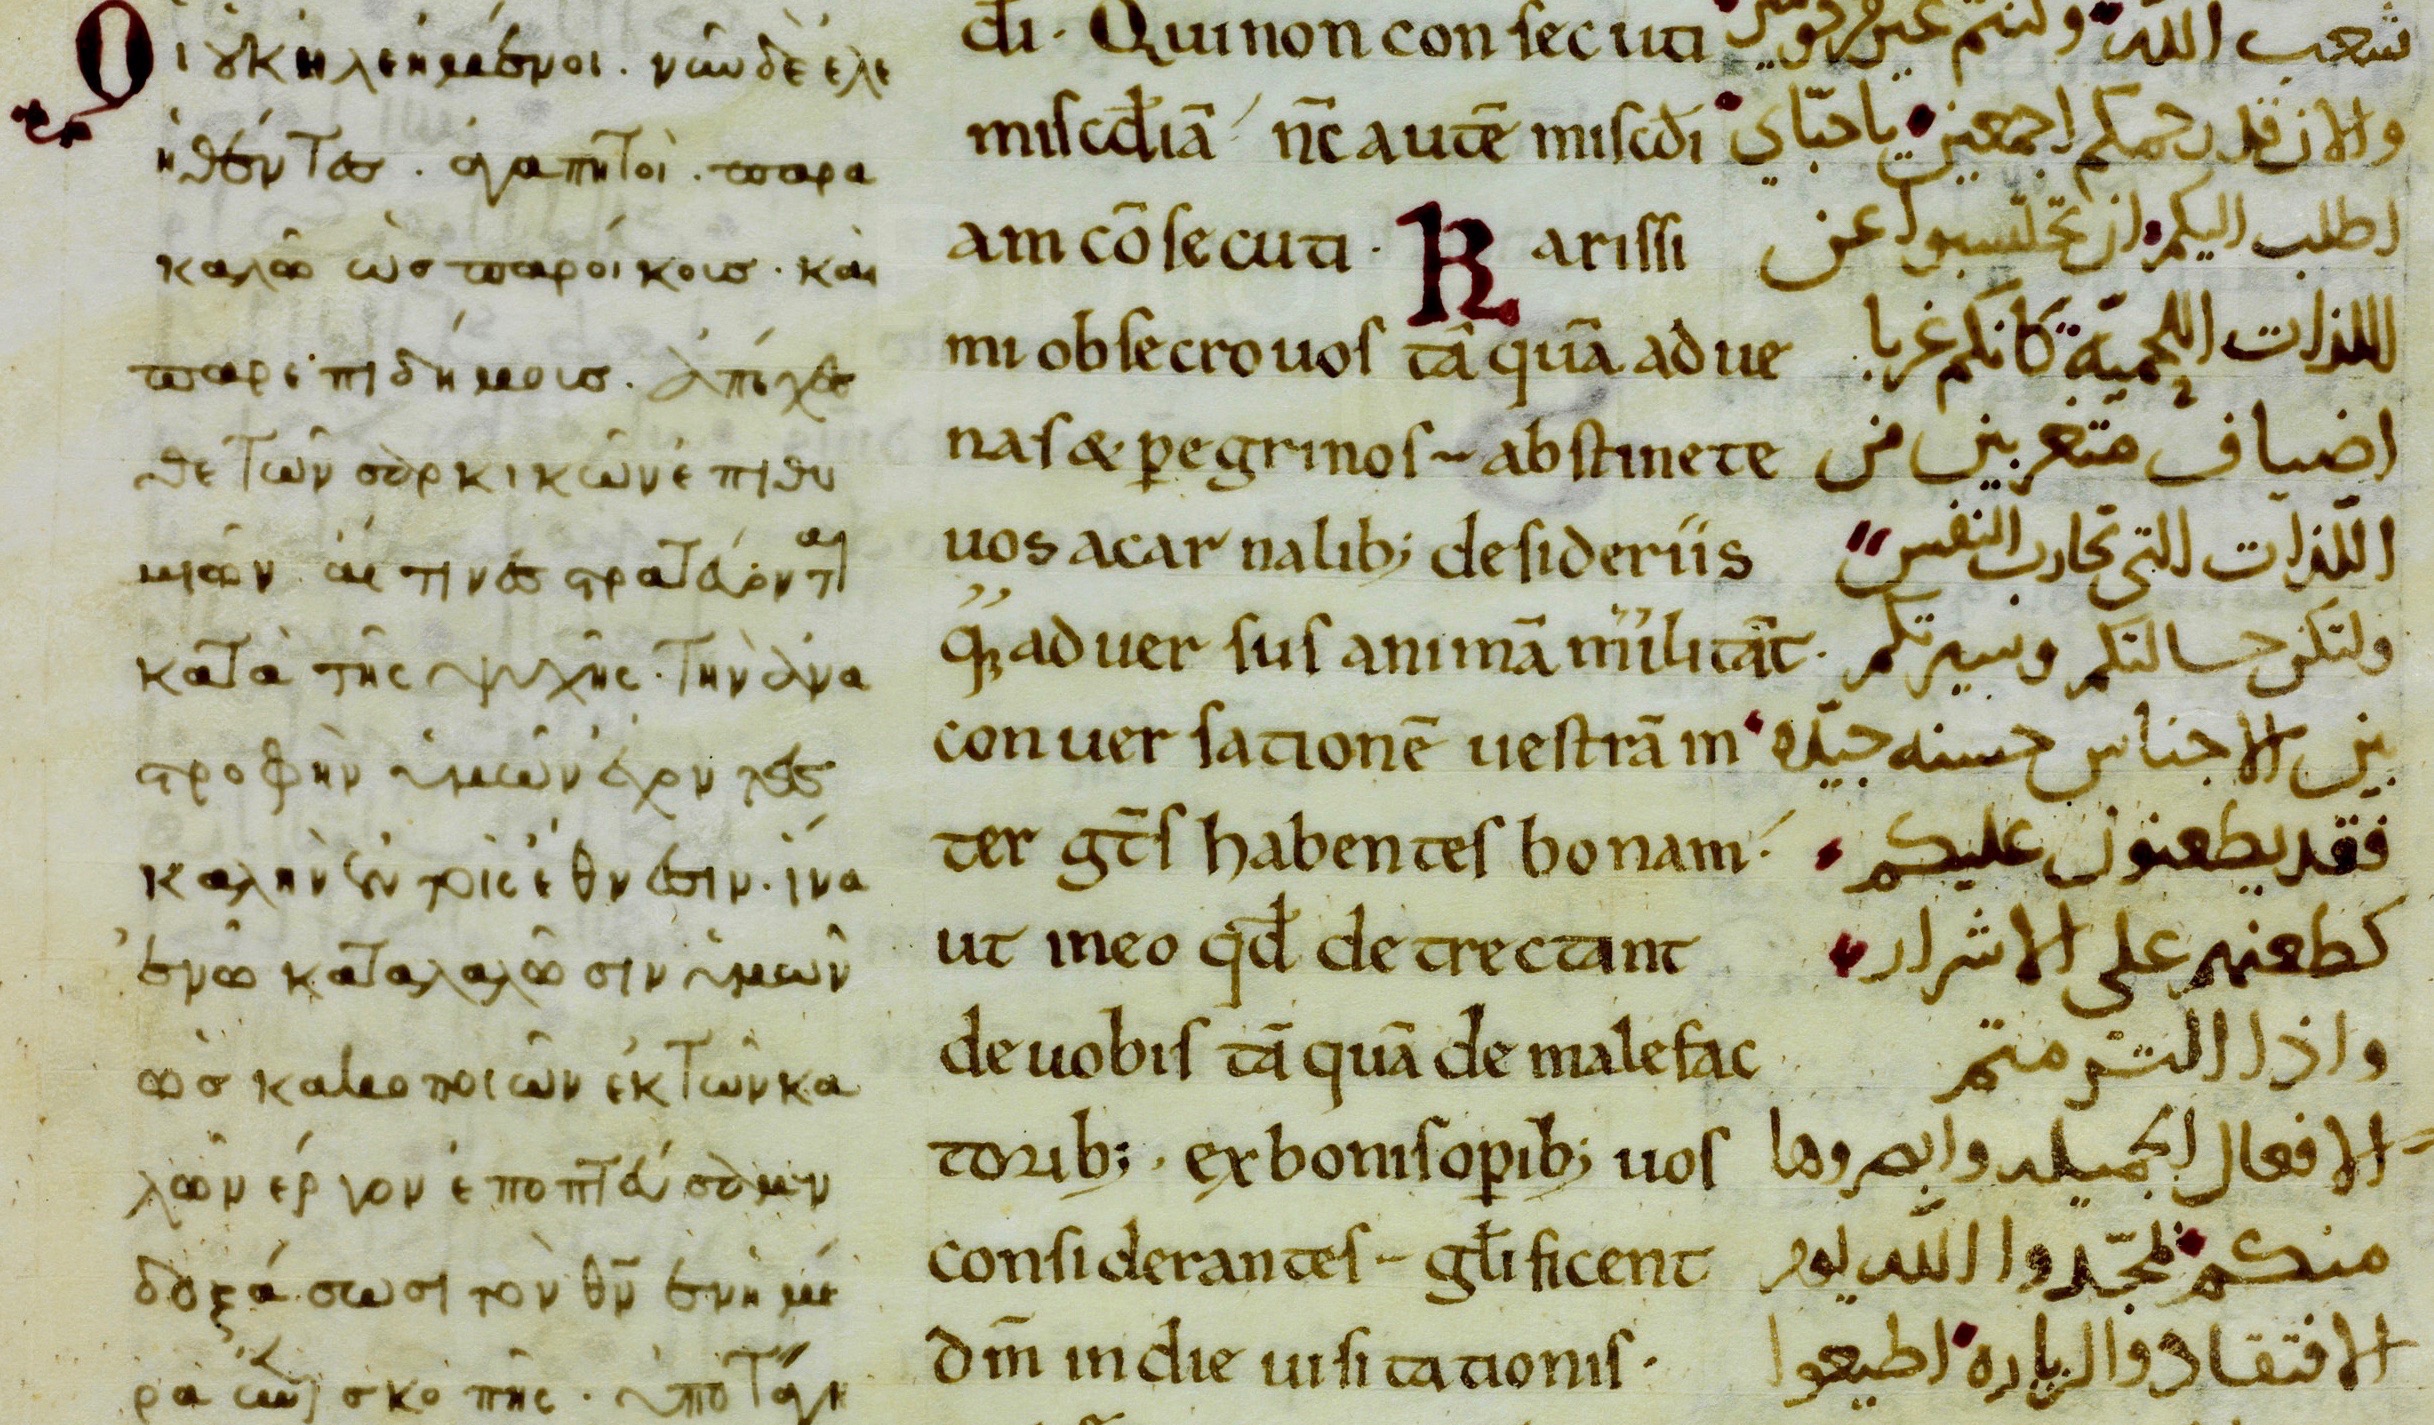 Οι ουκ ηλεημένοι. νῦν δὲ ἐλε
ηθέντες. ἀγαπητοὶ. παρα
καλῶ ὡς παροίκους. καὶ
παρεπιδήμους. ἀπέχεσ
θε τῶν σαρκικῶν ἐπιθυ
μιῶν. αἵ τινες στρατεύονται
κατὰ τῆς ψυχῆς. τὴν ἀνα
στροφὴν ὑμῶν ἔχοντες
καλὴν ἐν τοῖς ἔθνεσιν. ἵνα
ἐν ῶ καταλαλῶσιν ὑμῶν
ὡς κακοποιῶν ἐκ τῶν κα
λῶν έργον ἐποπτεύσαν
δοξάσωσι τὸν θν̅ ἐν ημέ
ρα ἐπισκοπῆς. ὑποτάγη
dī. Qui non consecuti
misc̄diā nc̄ autē misc̄di
am cōsecuti. Karissi
mi obsecro uos tā quā adue
nas & peregrinos abstinete
uos a carnalib; desideriis
q̄ aduersus animā militāt.
conuersationē uestrā in
ter gt̄s habentes bonam.
ut in eo qd̄ detrectant
de uobis tā quā de malefac
torib; . ex bonis opib; uos
considerantes gl̄ificent
dm̄ in die uisitationis.
شعب الله ولنتم غير
والان قد رحمكم اجمعين يا حباي
اطلب اليكم ان تجلسبوا عن
اللذات اللحمية كانكم غربا
اضياف متغربين من
اللذات التي تحارب النفس
ولتكن حسالتكم وسيرتكم
بين الاجناس حسنه جيده
فقد يطعنون عليكم
كطعنهم على الاشرار
واذا التزمتم
الافعال الجميله وابصروها
منكم فمجدوا الله يوم
الافتقاد والزياره اطيعوا